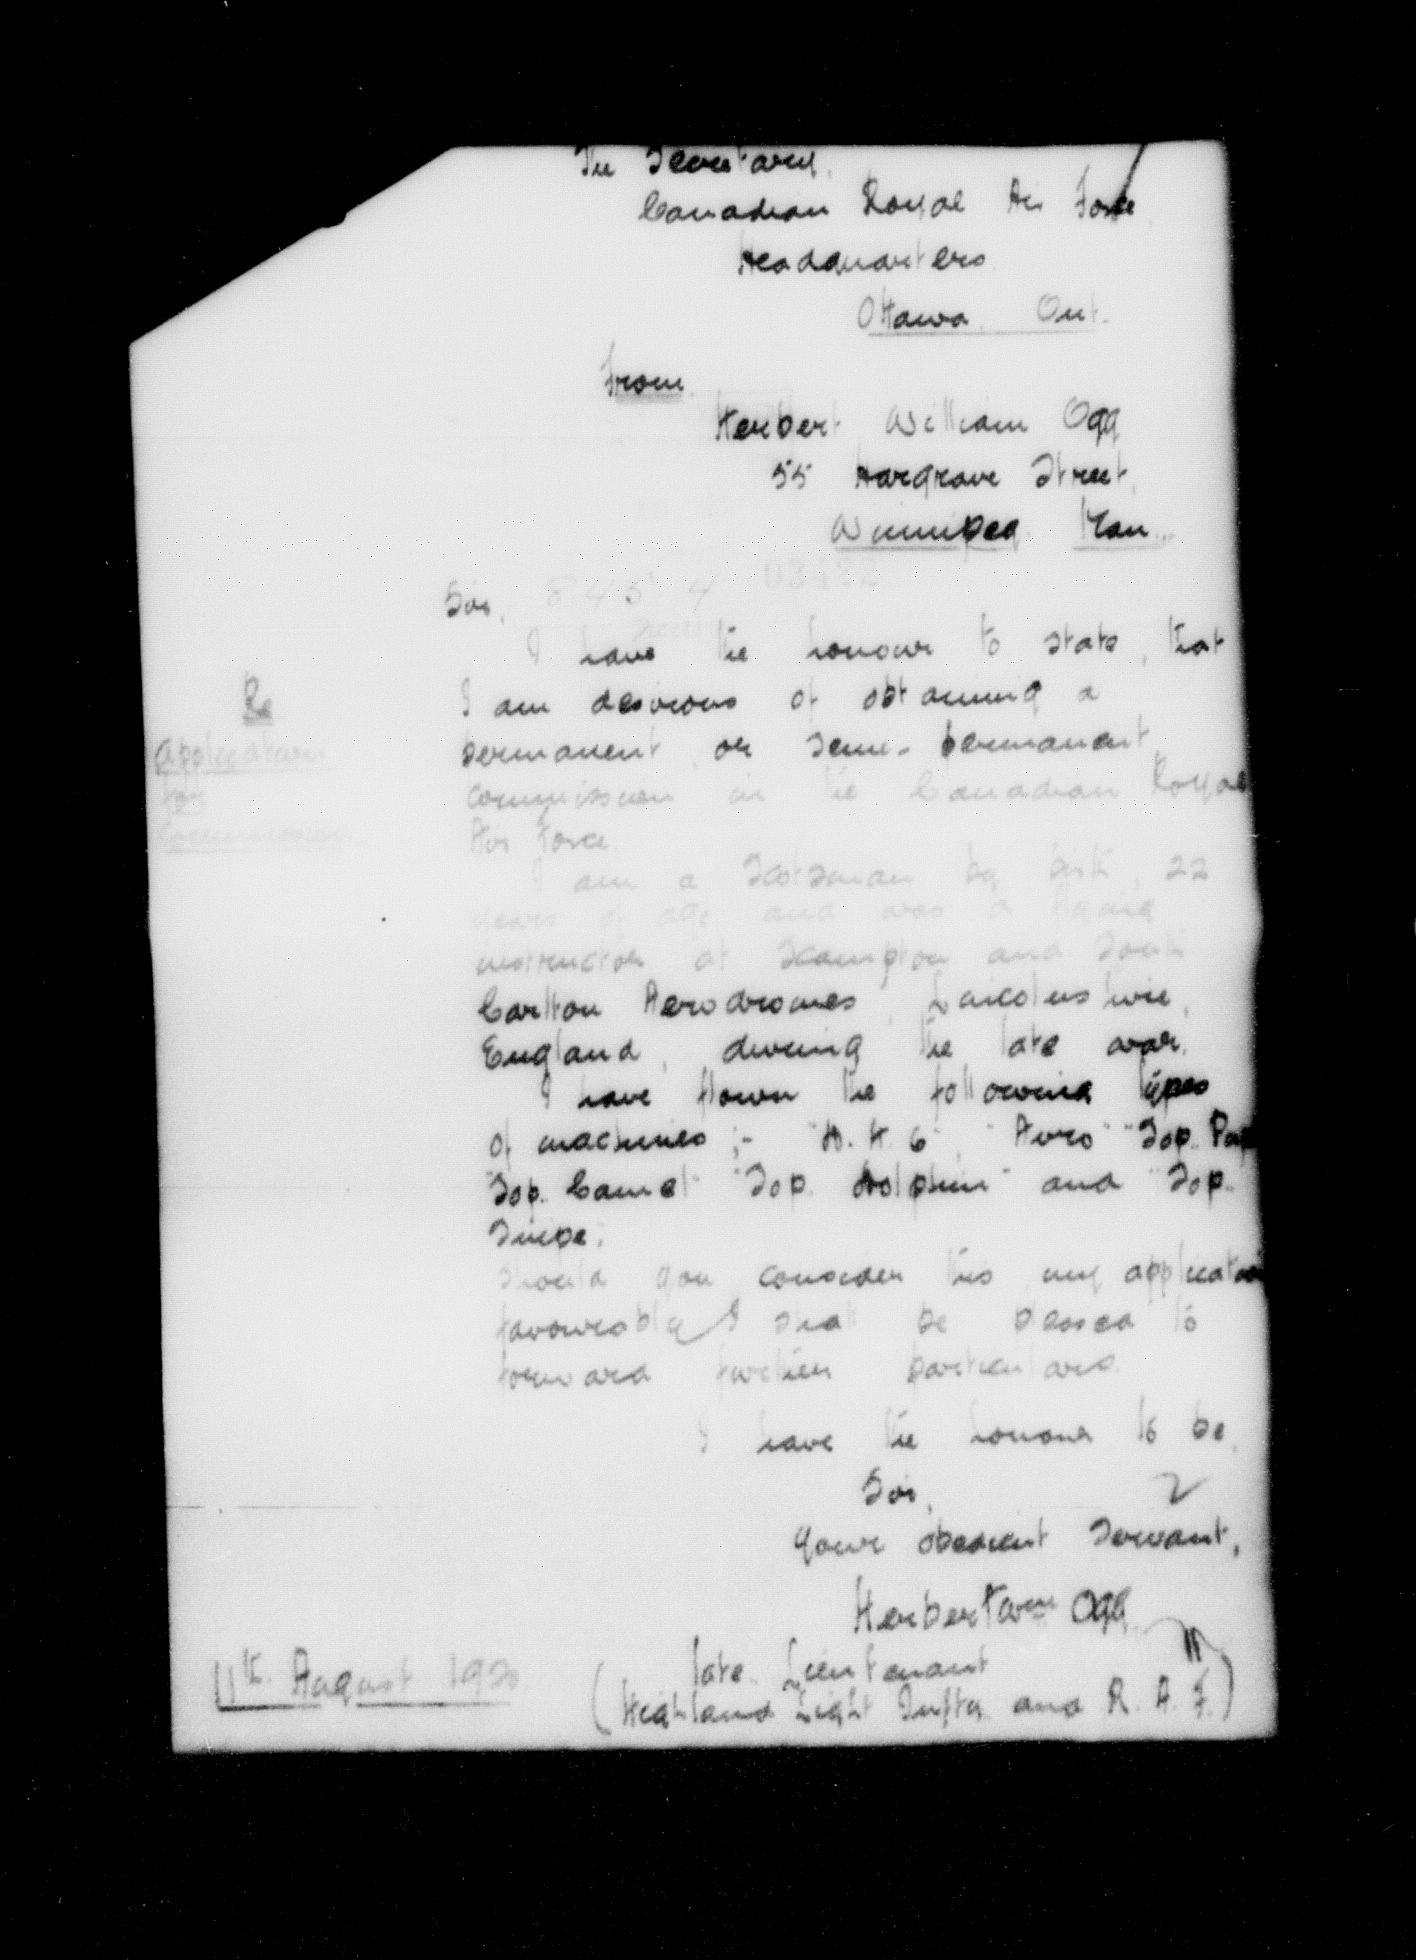 The Secretary,
Canadian Royal Air Force
Headquarters
Ottawa. Ont.
From
Herbert William Ogg
55 Hargrave Street,
Winnipeg Man.
Sir,
I have the honour to state, that
I am desirous of obtaining a
permanent or semi-permanent
commission in the Canadian Royal
Air Force
Re
Application
for
Commission
I am a Scotsman by birth, 22
years of age and was a flying
instructor at Scampton and South
Carlton Aerodromes, Lincolnshire,
England, during the late war.
I have flown the following types
of machines ;- "D. H. 6", "Avro" "Sop. Pup
"Sop. Camel" "Sop. Dolphin" and "Sop.
Snipe.
Should you consider this my application
favourably I shall be pleased to
forward further particulars.
I have the honour to be
Sir,
Your obedient Servant,
Herbert Wm Ogg
late Lieutenant
(Highland Light Inftry and R. A. F.)
11th August 1920